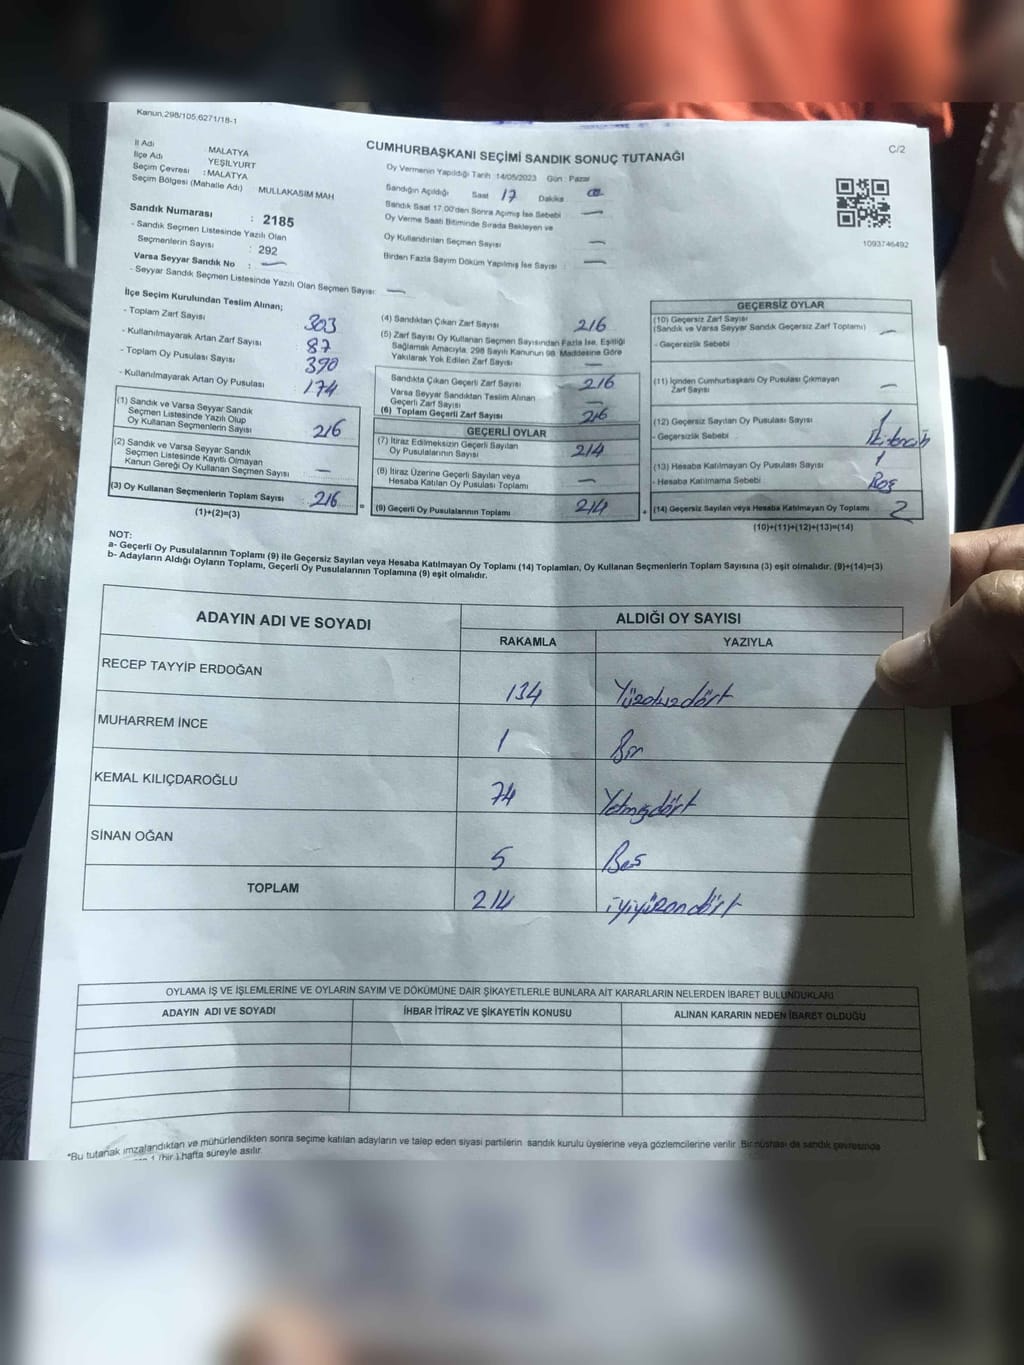 Kanun,298/105,6271/18-1
C/2
CUMHURBAŞKANI SEÇİMİ SANDIK SONUÇ TUTANAĞI
İl Adı : MALATYA
İlçe Adı YEŞİLYURT
Seçim Çevresi : MALATYA
Seçim Bölgesi (Mahalle Adı) MULLAKASIM MAH
Sandık Numarası : 2185
- Sandık Seçmen Listesinde Yazılı Olan
Seçmenlerin Sayısı : 292
Varsa Seyyar Sandık No : —
- Seyyar Sandık Seçmen Listesinde Yazılı Olan Seçmen Sayısı: —
Oy Vermenin Yapıldığı Tarih :14/05/2023 Gün : Pazar
Sandığın Açıldığı Saat 17 Dakika
Sandık Saat 17.00'den Sonra Açımış İse Sebebi —
Oy Verme Saati Bitiminde Sırada Bekleyen ve
Oy Kullandırılan Seçmen Sayısı —
Birden Fazla Sayım Döküm Yapılmış İse Sayısı : —
1093746492
İlçe Seçim Kurulundan Teslim Alınan;
- Toplam Zarf Sayısı : 303
- Kullanılmayarak Artan Zarf Sayısı : 87
- Toplam Oy Pusulası Sayısı : 390
- Kullanılmayarak Artan Oy Pusulası : 174
(1) Sandık ve Varsa Seyyar Sandık
Seçmen Listesinde Yazılı Olup
Oy Kullanan Seçmenlerin Sayısı : 216
(2) Sandık ve Varsa Seyyar Sandık
Seçmen Listesinde Kayıtlı Olmayan
Kanun Gereği Oy Kullanan Seçmen Sayısı : —
(3) Oy Kullanan Seçmenlerin Toplam Sayısı : 216
(1)+(2)=(3)
(4) Sandıktan Çıkan Zarf Sayısı 216
(5) Zarf Sayısı Oy Kullanan Seçmen Sayısından Fazla İse, Eşitliği
Sağlamak Amacıyla, 298 Sayılı Kanunun 98. Maddesine Göre
Yakılarak Yok Edilen Zarf Sayısı —
Sandıkta Çıkan Geçerli Zarf Sayısı 216
Varsa Seyyar Sandıktan Teslim Alınan
Geçerli Zarf Sayısı —
(6) Toplam Geçerli Zarf Sayısı 216
GEÇERLİ OYLAR
(7) İtiraz Edilmeksizin Geçerli Sayılan
Oy Pusulalarının Sayısı 214
(8) İtiraz Üzerine Geçerli Sayılan veya
Hesaba Katılan Oy Pusulası Toplamı —
= (9) Geçerli Oy Pusulalarının Toplamı 214 +
GEÇERSİZ OYLAR
(10) Geçersiz Zarf Sayısı
(Sandık ve Varsa Seyyar Sandık Geçersiz Zarf Toplamı) —
- Geçersizlik Sebebi
(11) İçinden Cumhurbaşkanı Oy Pusulası Çıkmayan
Zarf Sayısı —
(12) Geçersiz Sayılan Oy Pusulası Sayısı 1
- Geçersizlik Sebebi
(13) Hesaba Katılmayan Oy Pusulası Sayısı 1
- Hesaba Katılmama Sebebi Boş
(14) Geçersiz Sayılan veya Hesaba Katılmayan Oy Toplamı 2
(10)+(11)+(12)+(13)=(14)
NOT:
a- Geçerli Oy Pusulalarının Toplamı (9) ile Geçersiz Sayılan veya Hesaba Katılmayan Oy Toplamı (14) Toplamları, Oy Kullanan Seçmenlerin Toplam Sayısına (3) eşit olmalıdır. (9)+(14)=(3)
b- Adayların Aldığı Oyların Toplamı, Geçerli Oy Pusulalarının Toplamına (9) eşit olmalıdır.
ADAYIN ADI VE SOYADI ALDIĞI OY SAYISI
RAKAMLA YAZIYLA
RECEP TAYYİP ERDOĞAN 134 Yüzotuzdört
MUHARREM İNCE 1 Bir
KEMAL KILIÇDAROĞLU 74 Yetmişdört
SİNAN OĞAN 5 Beş
TOPLAM 214 iyiyüzondört
OYLAMA İŞ VE İŞLEMLERİNE VE OYLARIN SAYIM VE DÖKÜMÜNE DAİR ŞİKAYETLERLE BUNLARA AİT KARARLARIN NELERDEN İBARET BULUNDUKLARI
ADAYIN ADI VE SOYADI İHBAR İTİRAZ VE ŞİKAYETİN KONUSU ALINAN KARARIN NEDEN İBARET OLDUĞU
*Bu tutanak imzalandıktan ve mühürlendikten sonra seçime katılan adayların ve talep eden siyasi partilerin sandık kurulu üyelerine veya gözlemcilerine verilir. Bir nüshası da sandık çevresinde
1 (bir) hafta süreyle asılır.